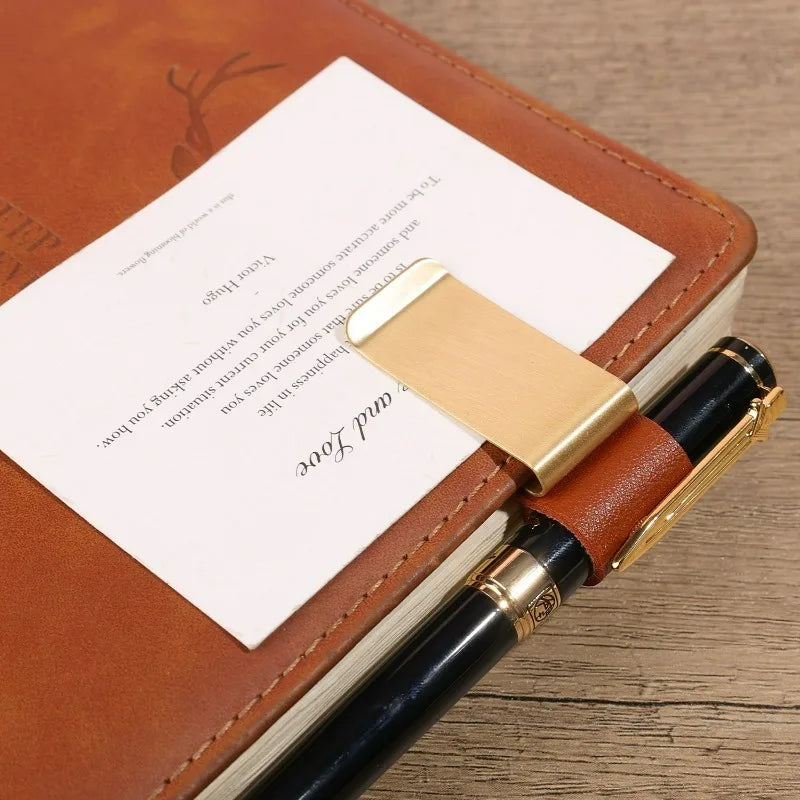 and Love
happiness in life
Is to be sure that someone loves you
and someone loves you for your current situation.
To be more accurate someone loves you without asking you how.
-
Victor Hugo
this is a world of blooming flowers